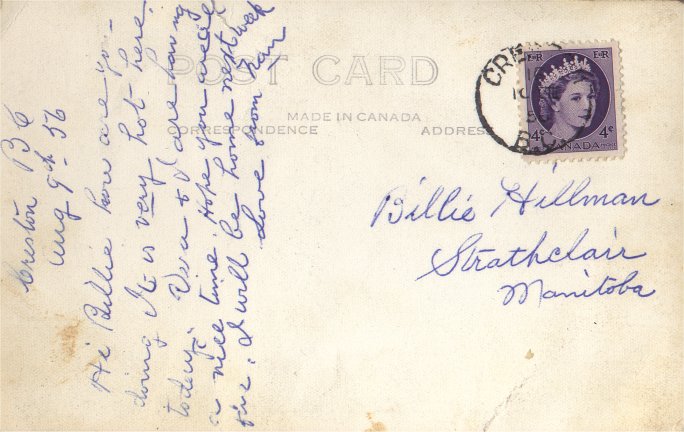 Creston B C
Aug 9th 56
Hi Billie how are you
doing It is very hot here
today. Viva & I are having
a nice time. Hope you are all
fine. I will be home next week
Love from Gran
POST CARD
MADE IN CANADA
CORRESPONDENCE
ADDRESS
CRE
B.C.
E II R
E II R
4¢
4¢
CANADA
Billie Hillman
Strathclair
Manitoba